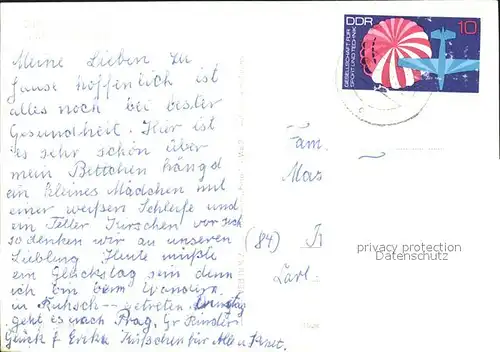 DDR 10
GESELLSCHAFT FÜR
SPORT UND TECHNIK
Meine Lieben zu
Hause hoffenlich ist
alles noch bei bester
Gesundheit. Hier ist
es sehr schön über
mein Bettchen hängd
ein kleines Mädchen mit
einer weißen Schleife und
ein Teller Kirschen vor sich
so denken wir an unseren
Liebling. Heute müßte
ein Glückstag sein denn
ich bin beim Wandern
in Kuhsch-- getreten
geht es nach Prag. Gr Rinder
Glück f Erika Küßchen für Alle
Fam.
(84)
privacy protection
Datenschutz